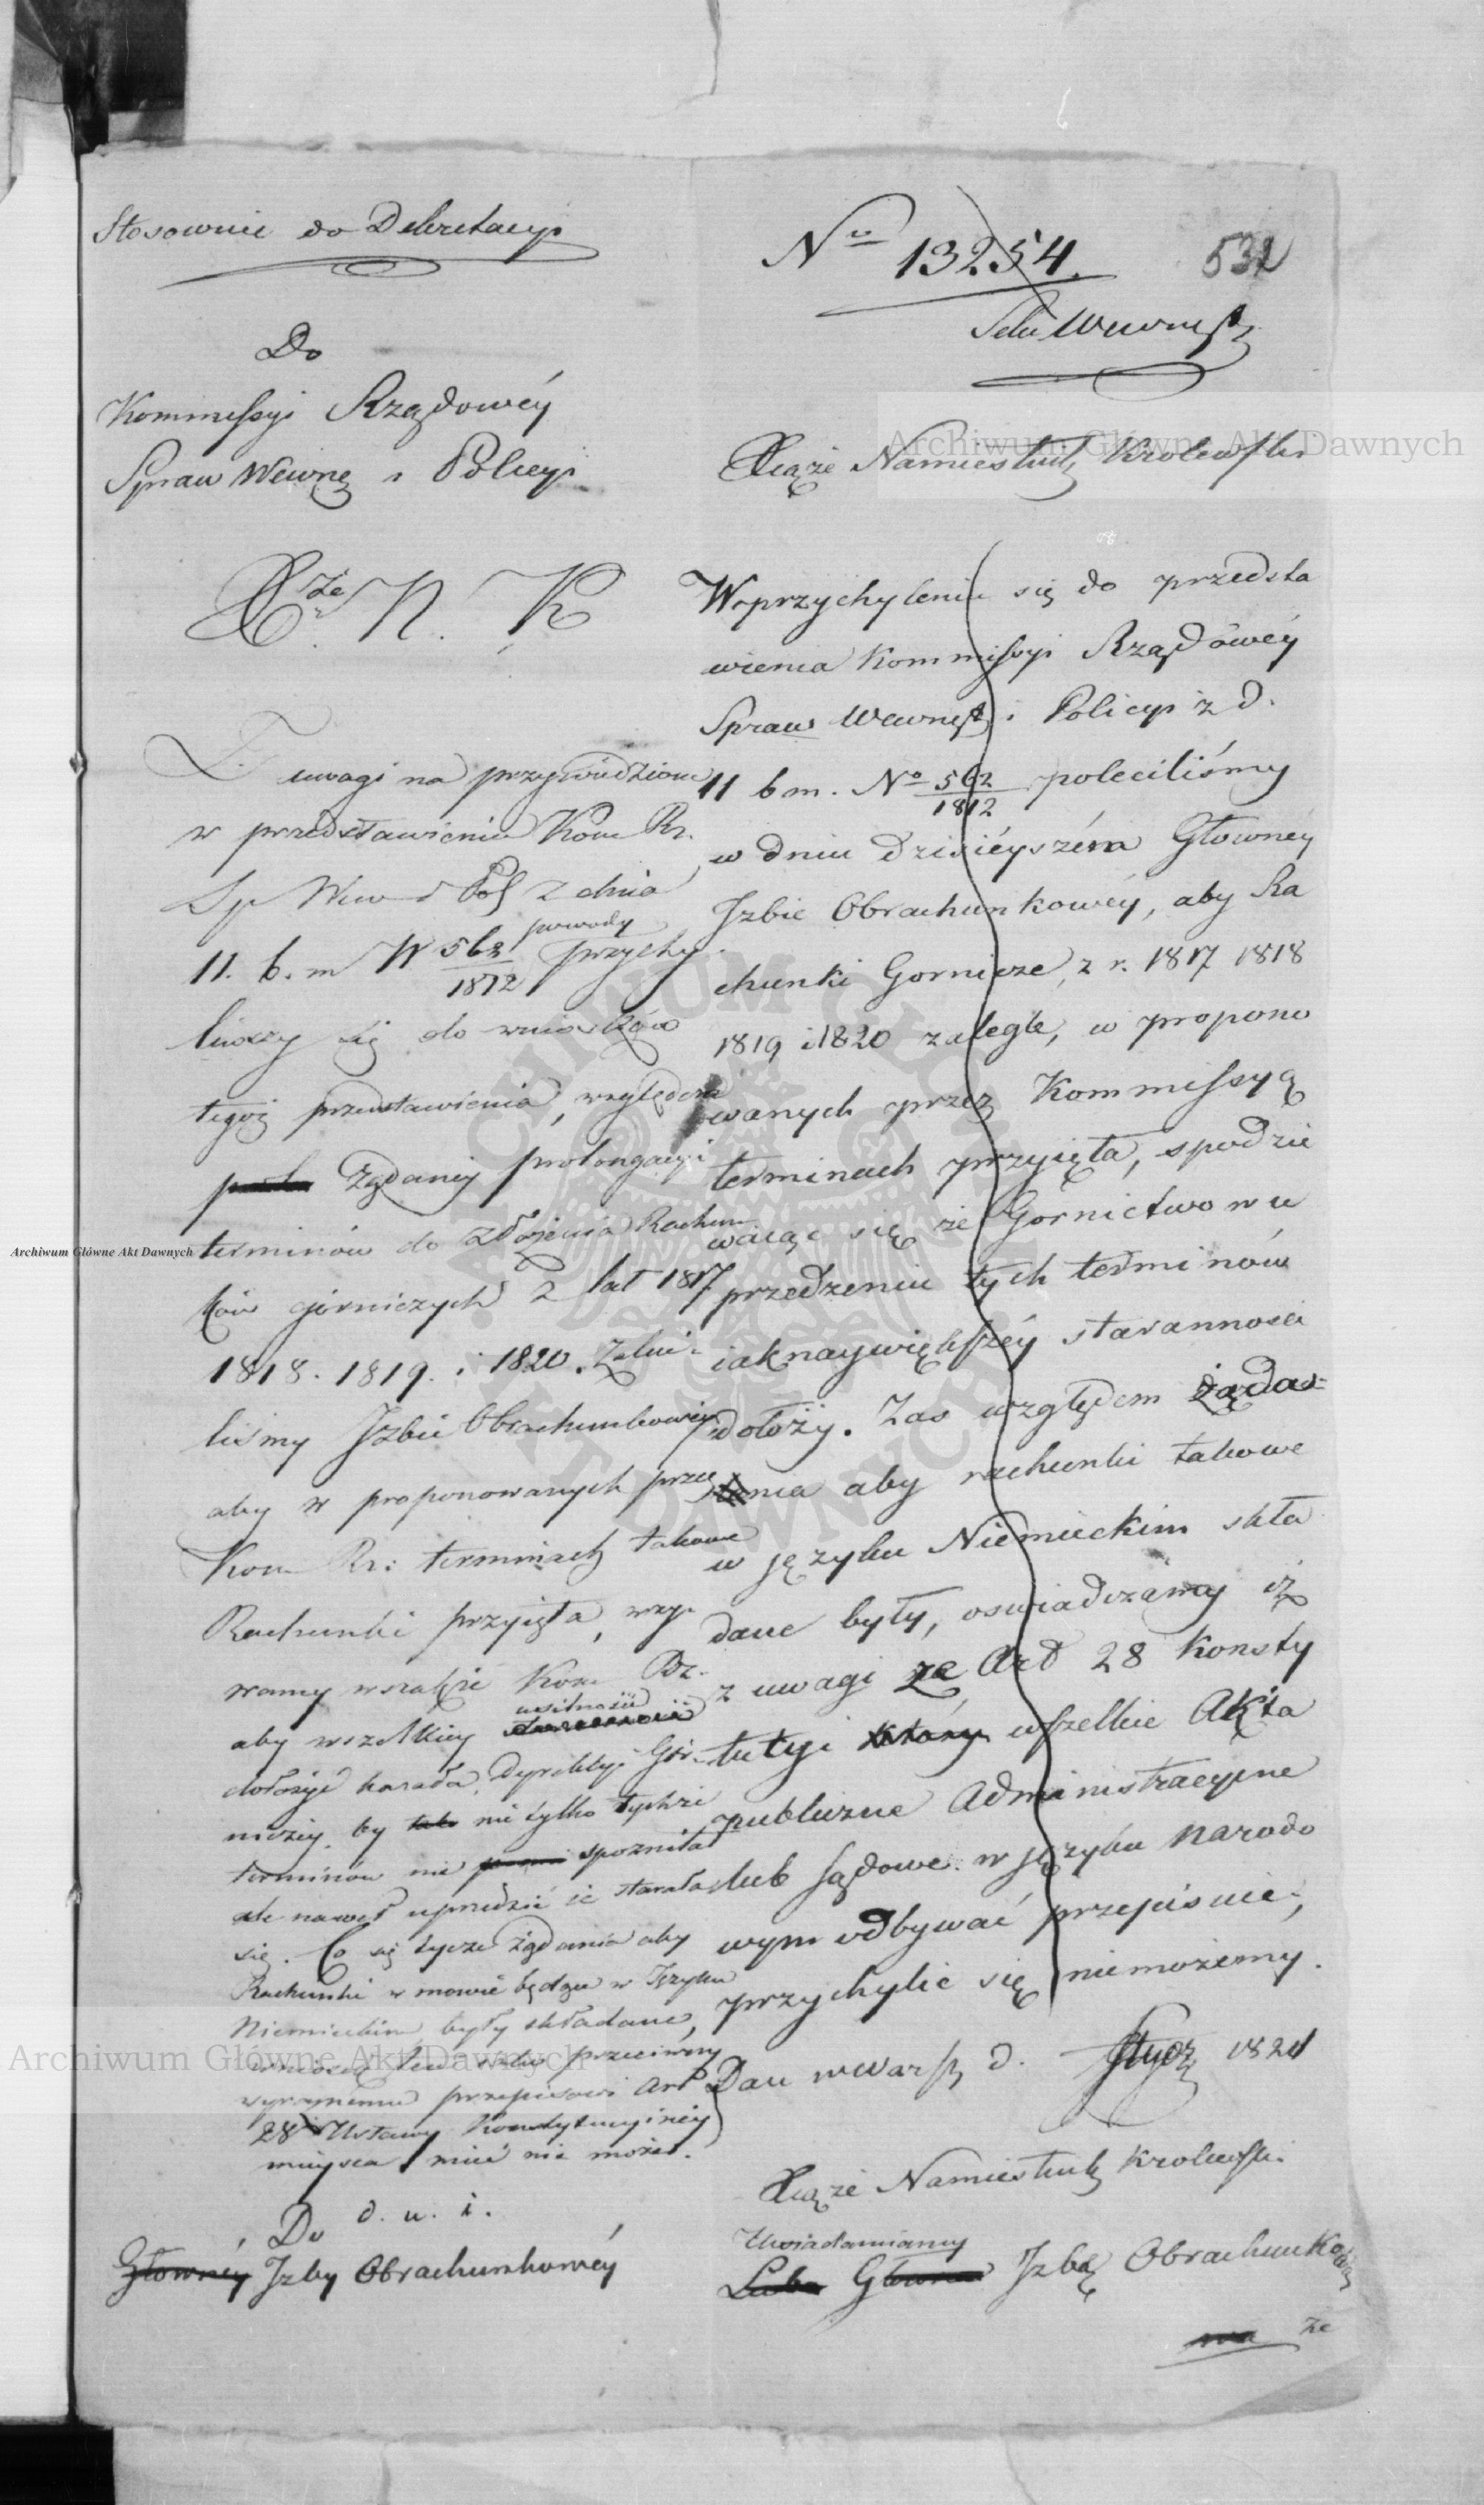 Stosownie do Dekretacyi
Do
Kommissyi Rządowéy
Spraw Wewnę i Policyi
Xże N. K
Z uwagi na przywiedzione
w przedstawieniu Kom Rz.
Sp Wew i Pol z dnia
powody
11. b. m N 562/1812 przychy
liwszy się do wniosków
tegoż przedstawienia, względem
żądaney prolongacyi
terminów do złożenia Rachun
ków górniczych z lat 1817
1818. 1819. i 1820. Zaleci-
liśmy Izbie Obrachunkowey
aby w proponowanych przez
Kom Rz: terminach takowe
Rachunki przyięła, wzy-
wamy wszakże Kom Rz.
usilności
aby wszelkiey
dołożyć kazała Dyrekcyi Gór-
niczey, by nie tylko tychże
terminów nie spozniła
ale nawet uprzedzić ie starała
się. Co się tycze żądania aby
Rachunki w mowie będące w Języku
Niemieckim były składane,
wniosek ten iako przeciwny
wyraźnemu przepisowi Art
28 Ustawy Konstytucyiney
mieysca mieć nie może.
Do d. u. i.
Główney Izby Obrachunkowéy
No 13254. 532
Sekr Wewnętr
Xiąże Namiestnik Krolewski
W przychyleniu się do przedsta
wienia Kommissyi Rządowéy
Spraw Wewnętr i Policyi z d.
11 b m. No 562/1812 poleciliśmy
w dniu dzisiéyszém Głowney
Izbie Obrachunkowéy, aby Ra
chunki Gornicze, z r. 1817 1818
1819 i 1820 zaległe, w propono
wanych przez Kommissyą
terminach przyięła, spodzie
waiąc się że Górnictwo w u
przedzeniu tych terminów
iak naywiększéy starannosci
dołoży. Zas względem żąda=
nia aby rachunki takowe
w języku Niemieckim skła
dane były, oswiadczamy iż
z uwagi ze Art 28 Konsty
tucyi który wszelkie Akta
publiczne Administracyjne
lub sądowe w języku narodo
wym odbywać przepisuie,
przychylic się niemożemy.
Dan w Warsz d. Stycz 1821
Xiąże Namiestnik Krolewski
Uwiadamiamy
Głowna Izbę Obrachunkową
ze
Archiwum Główne Akt Dawnych
Archiwum Główne Akt Dawnych
Archiwum Główne Akt Dawnych
ARCHIWUM GŁÓWNE AKT DAWNYCH